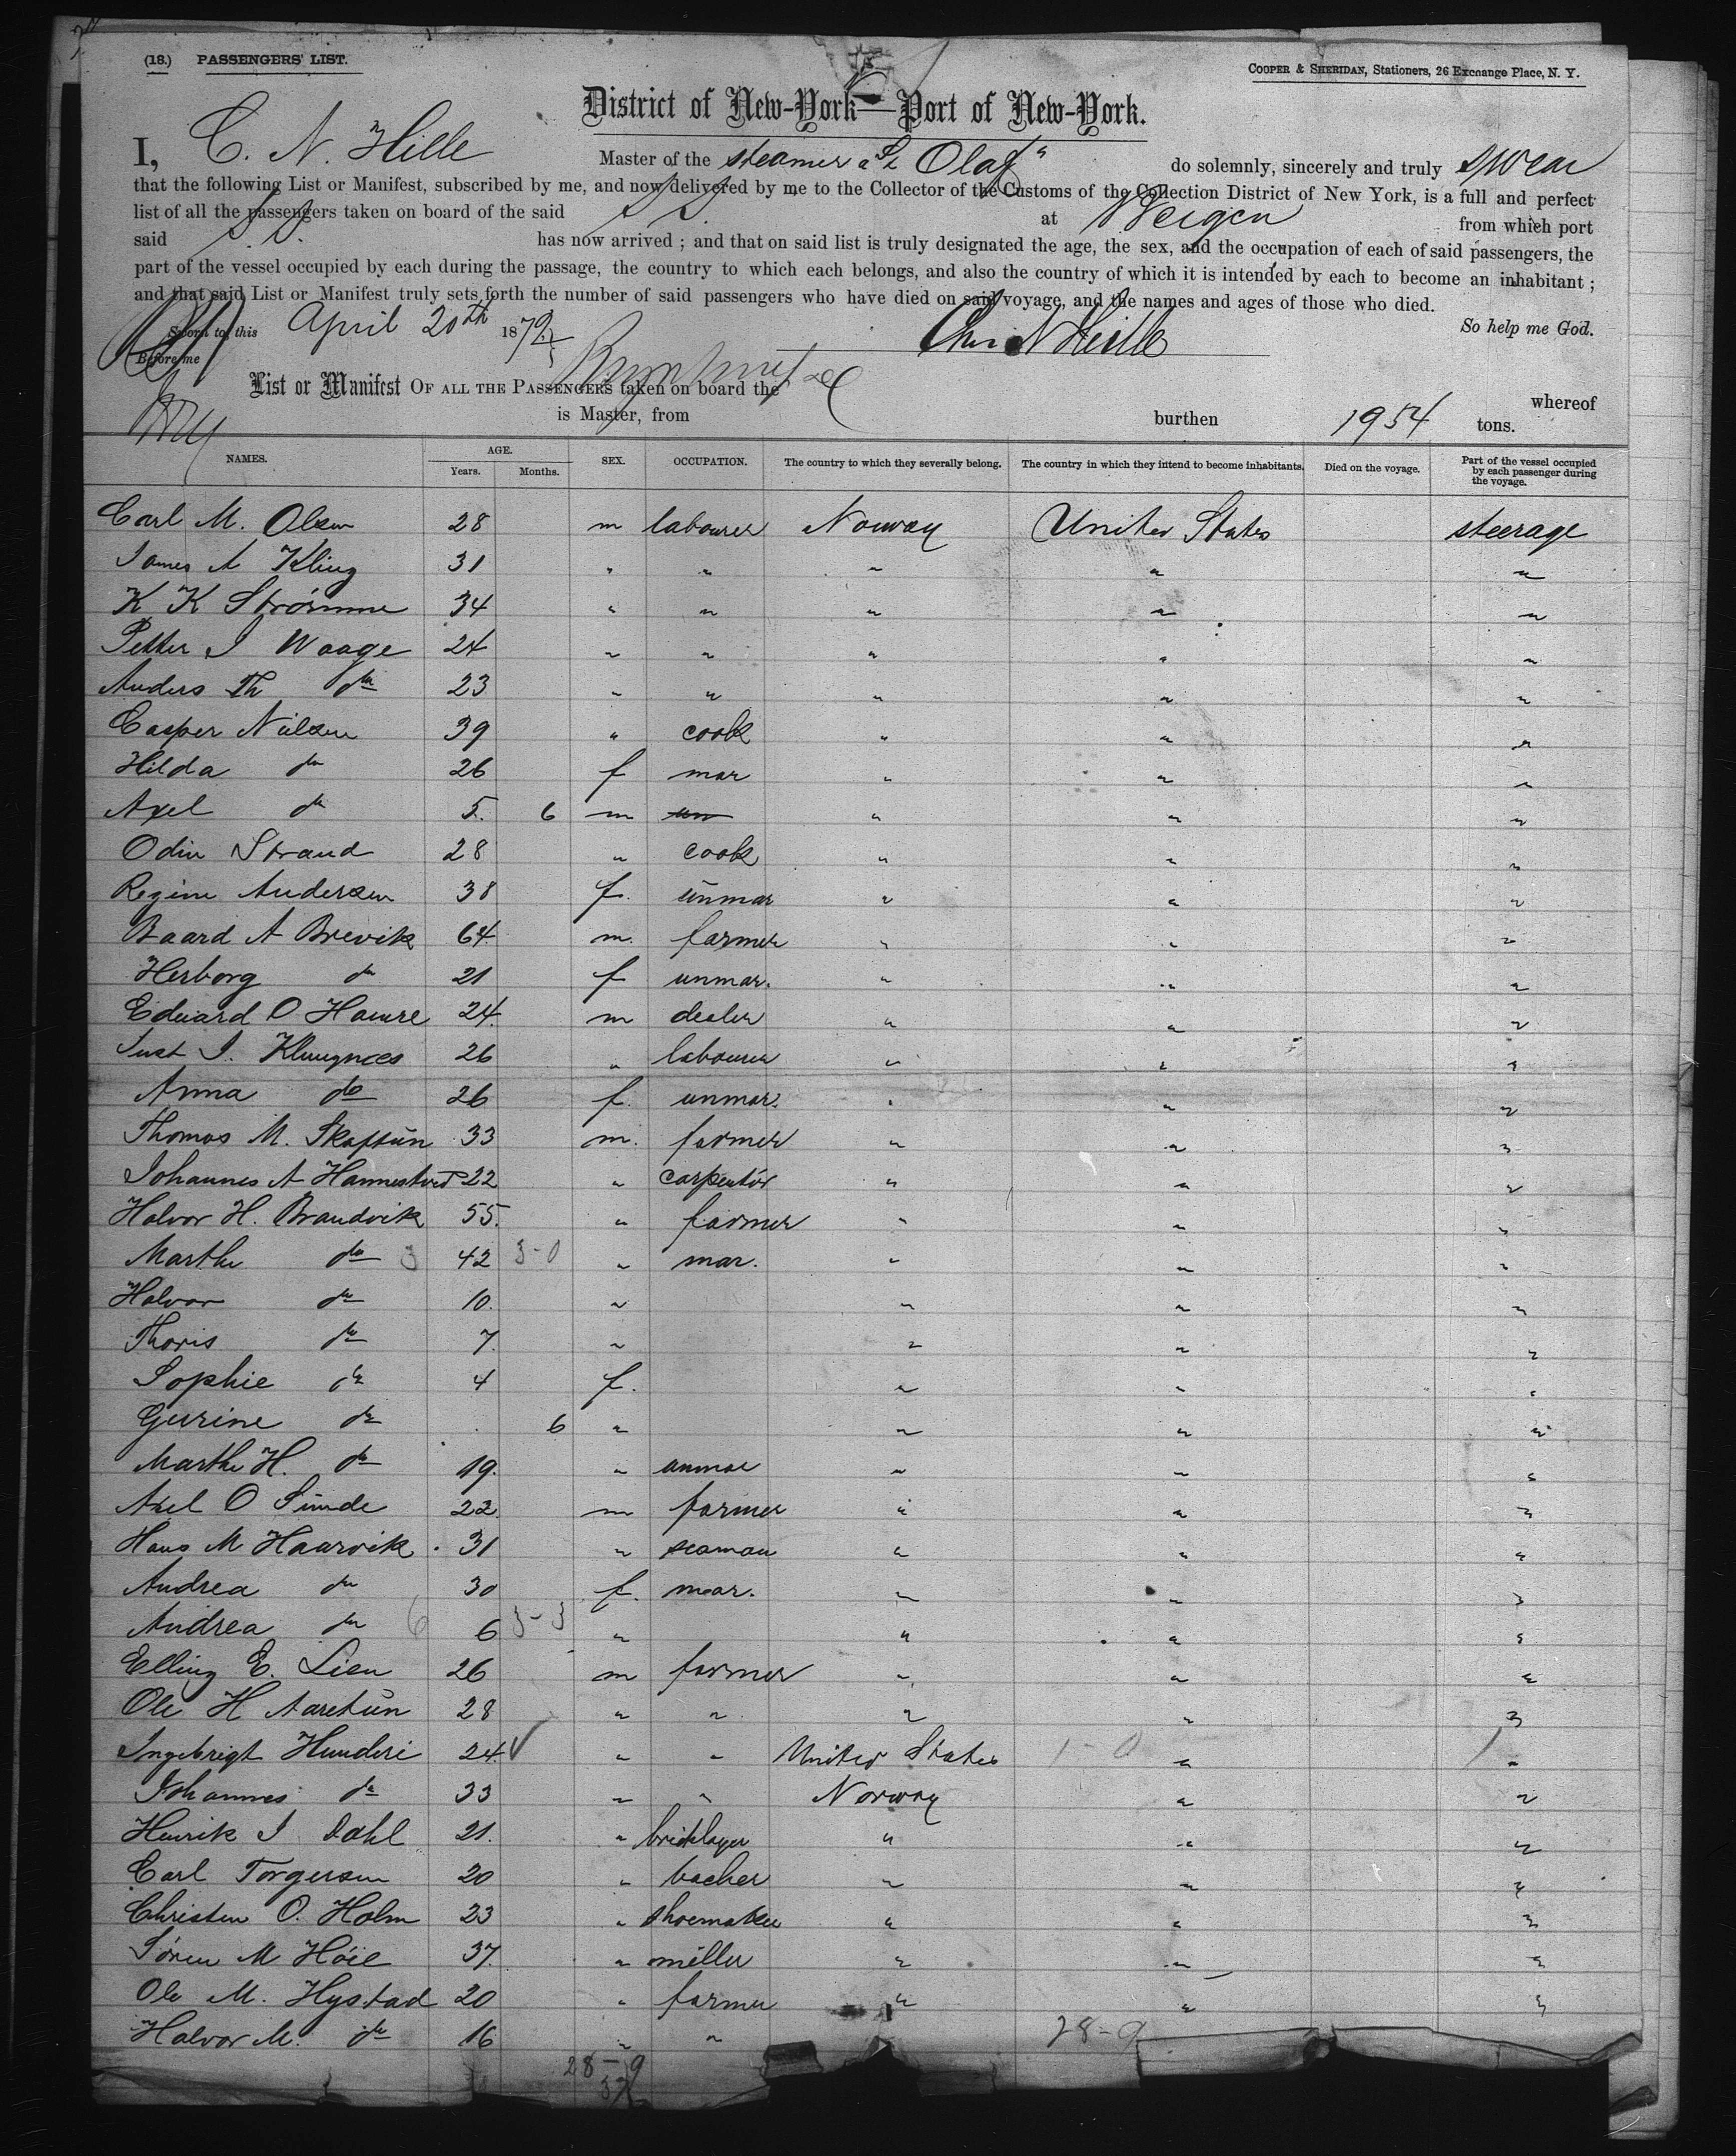 (18.) PASSENGERS' LIST.
COOPER & SHERIDAN, Stationers, 26 Exchange Place, N. Y.
District of New-York—Port of New-York.
I, C. N. Hille Master of the steamer "St Olaf" do solemnly, sincerely and truly swear
that the following List or Manifest, subscribed by me, and now delivered by me to the Collector of the Customs of the Collection District of New York, is a full and perfect
list of all the passengers taken on board of the said S.S. at Bergen from which port
said S.S. has now arrived ; and that on said list is truly designated the age, the sex, and the occupation of each of said passengers, the
part of the vessel occupied by each during the passage, the country to which each belongs, and also the country of which it is intended by each to become an inhabitant ;
and that said List or Manifest truly sets forth the number of said passengers who have died on said voyage, and the names and ages of those who died.
So help me God.
Sworn to, this April 20th 1879 Chr. N Hille
Before me
List or Manifest OF ALL THE PASSENGERS taken on board the whereof
is Master, from burthen 1954 tons.
NAMES. AGE. SEX. OCCUPATION. The country to which they severally belong. The country in which they intend to become inhabitants. Died on the voyage. Part of the vessel occupied by each passenger during the voyage.
Years. Months.
Carl M. Olsen 28 m labourer Norway United States steerage
James A Kling 31 " " " " "
K K Strömme 34 " " " " "
Petter I Waage 24 " " " " "
Anders Th do 23 " " " " "
Casper Nilsen 39 " cook " " "
Hilda do 26 f mar " " "
Axel do 5. 6 m " " "
Odin Strand 28 " cook " " "
Regine Andersen 38 f. unmar " " "
Baard A Brevik 64 m. farmer " " "
Herborg do 21 f unmar. " " "
Edward O Hamre 24. m dealer " " "
Just I. Klungnces 26 " labourer " " "
Anna do 26 f. unmar. " " "
Thomas M. Skaftun 33 m. farmer " " "
Johannes A Hannestved 22 " carpentör " " "
Halvor H. Brandvik 55. " farmer " " "
Marthe do 3 42 3-0 " mar. " " "
Halvor do 10. " " " "
Thoris do 7. " " " "
Sophie do 4 f. " " "
Gurine do 6 " " " "
Marthe H. do 19. " unmar " " "
Axel O Sunde 22. m farmer " " "
Hans M Haarvik 31 " seaman " " "
Andrea do 30 f. mar. " " "
Andrea do 6 6 3-3 " " " "
Elling E. Lien 26 m farmer " " "
Ole H Aaretun 28 " " " " "
Ingebrigt Hunderi 24. √ " " United States 1-0 " 1 "
Johannes do 33 " " Norway " "
Henrik I Dahl 21. " bricklayer " " "
Carl Torgersen 20 " bacher " " "
Christen O. Holm 23 " shoemaker " " "
Sören M Höie 37. " miller " " "
Ole M. Hystad 20 " farmer " " "
Halvor M. do 16 " " 28-9
28-9
37